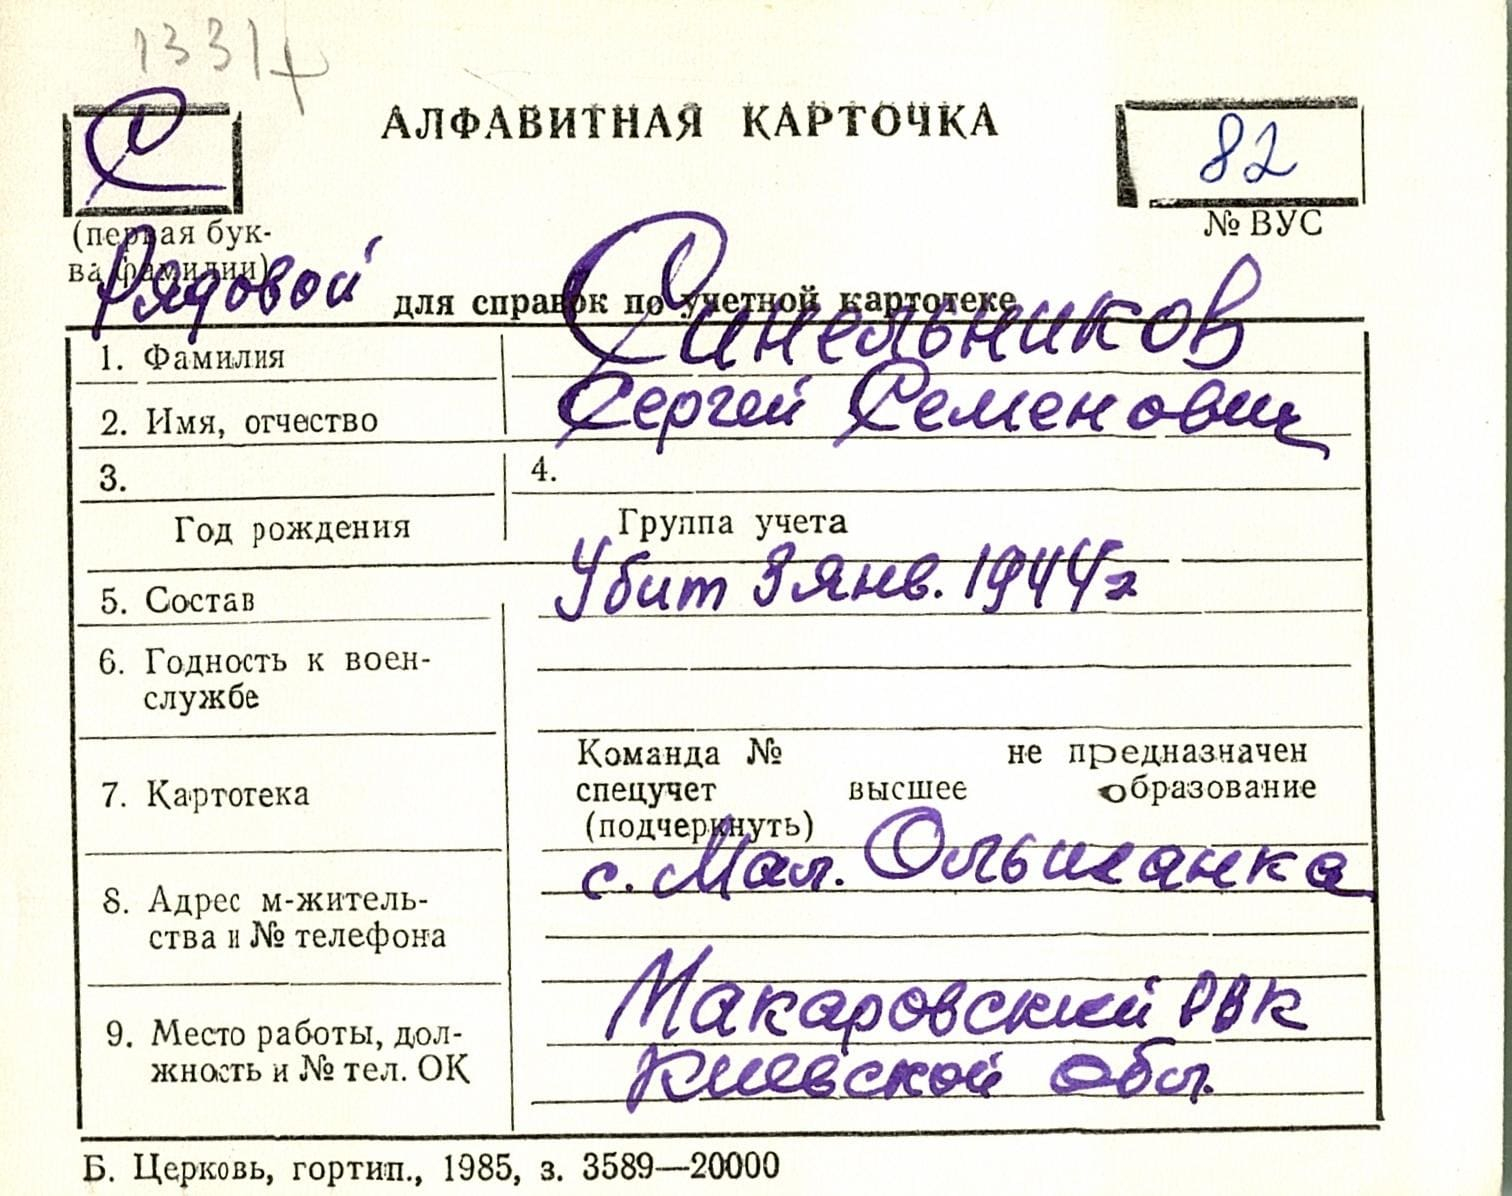 1331
С
АЛФАВИТНАЯ КАРТОЧКА
82
(первая бук-
ва фамилии)
№ ВУС
Рядовой
для справок по учетной картотеке
1. Фамилия Синельников
2. Имя, отчество Сергей Семенович
3. 4.
Год рождения Группа учета
5. Состав Убит 3 янв. 1944г
6. Годность к воен-
службе
Команда № не предназначен
7. Картотека спецучет высшее образование
(подчеркнуть)
с. Мал. Ольшанка
8. Адрес м-житель-
ства и № телефона
Макаровский РВК
9. Место работы, дол-
жность и № тел. ОК Киевской обл.
Б. Церковь, гортип., 1985, з. 3589—20000